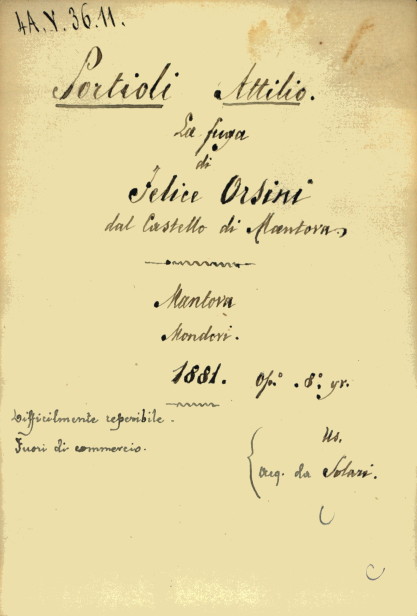 4A.Y.36.11.
Portioli Attilio.
La fuga
di
Felice Orsini
dal Castello di Mantova.
Mantova
Mondovi.
1881. Op.º 8.º gr.
Difficilmente reperibile.
Fuori di commercio.
Us.
acq. da Solari.